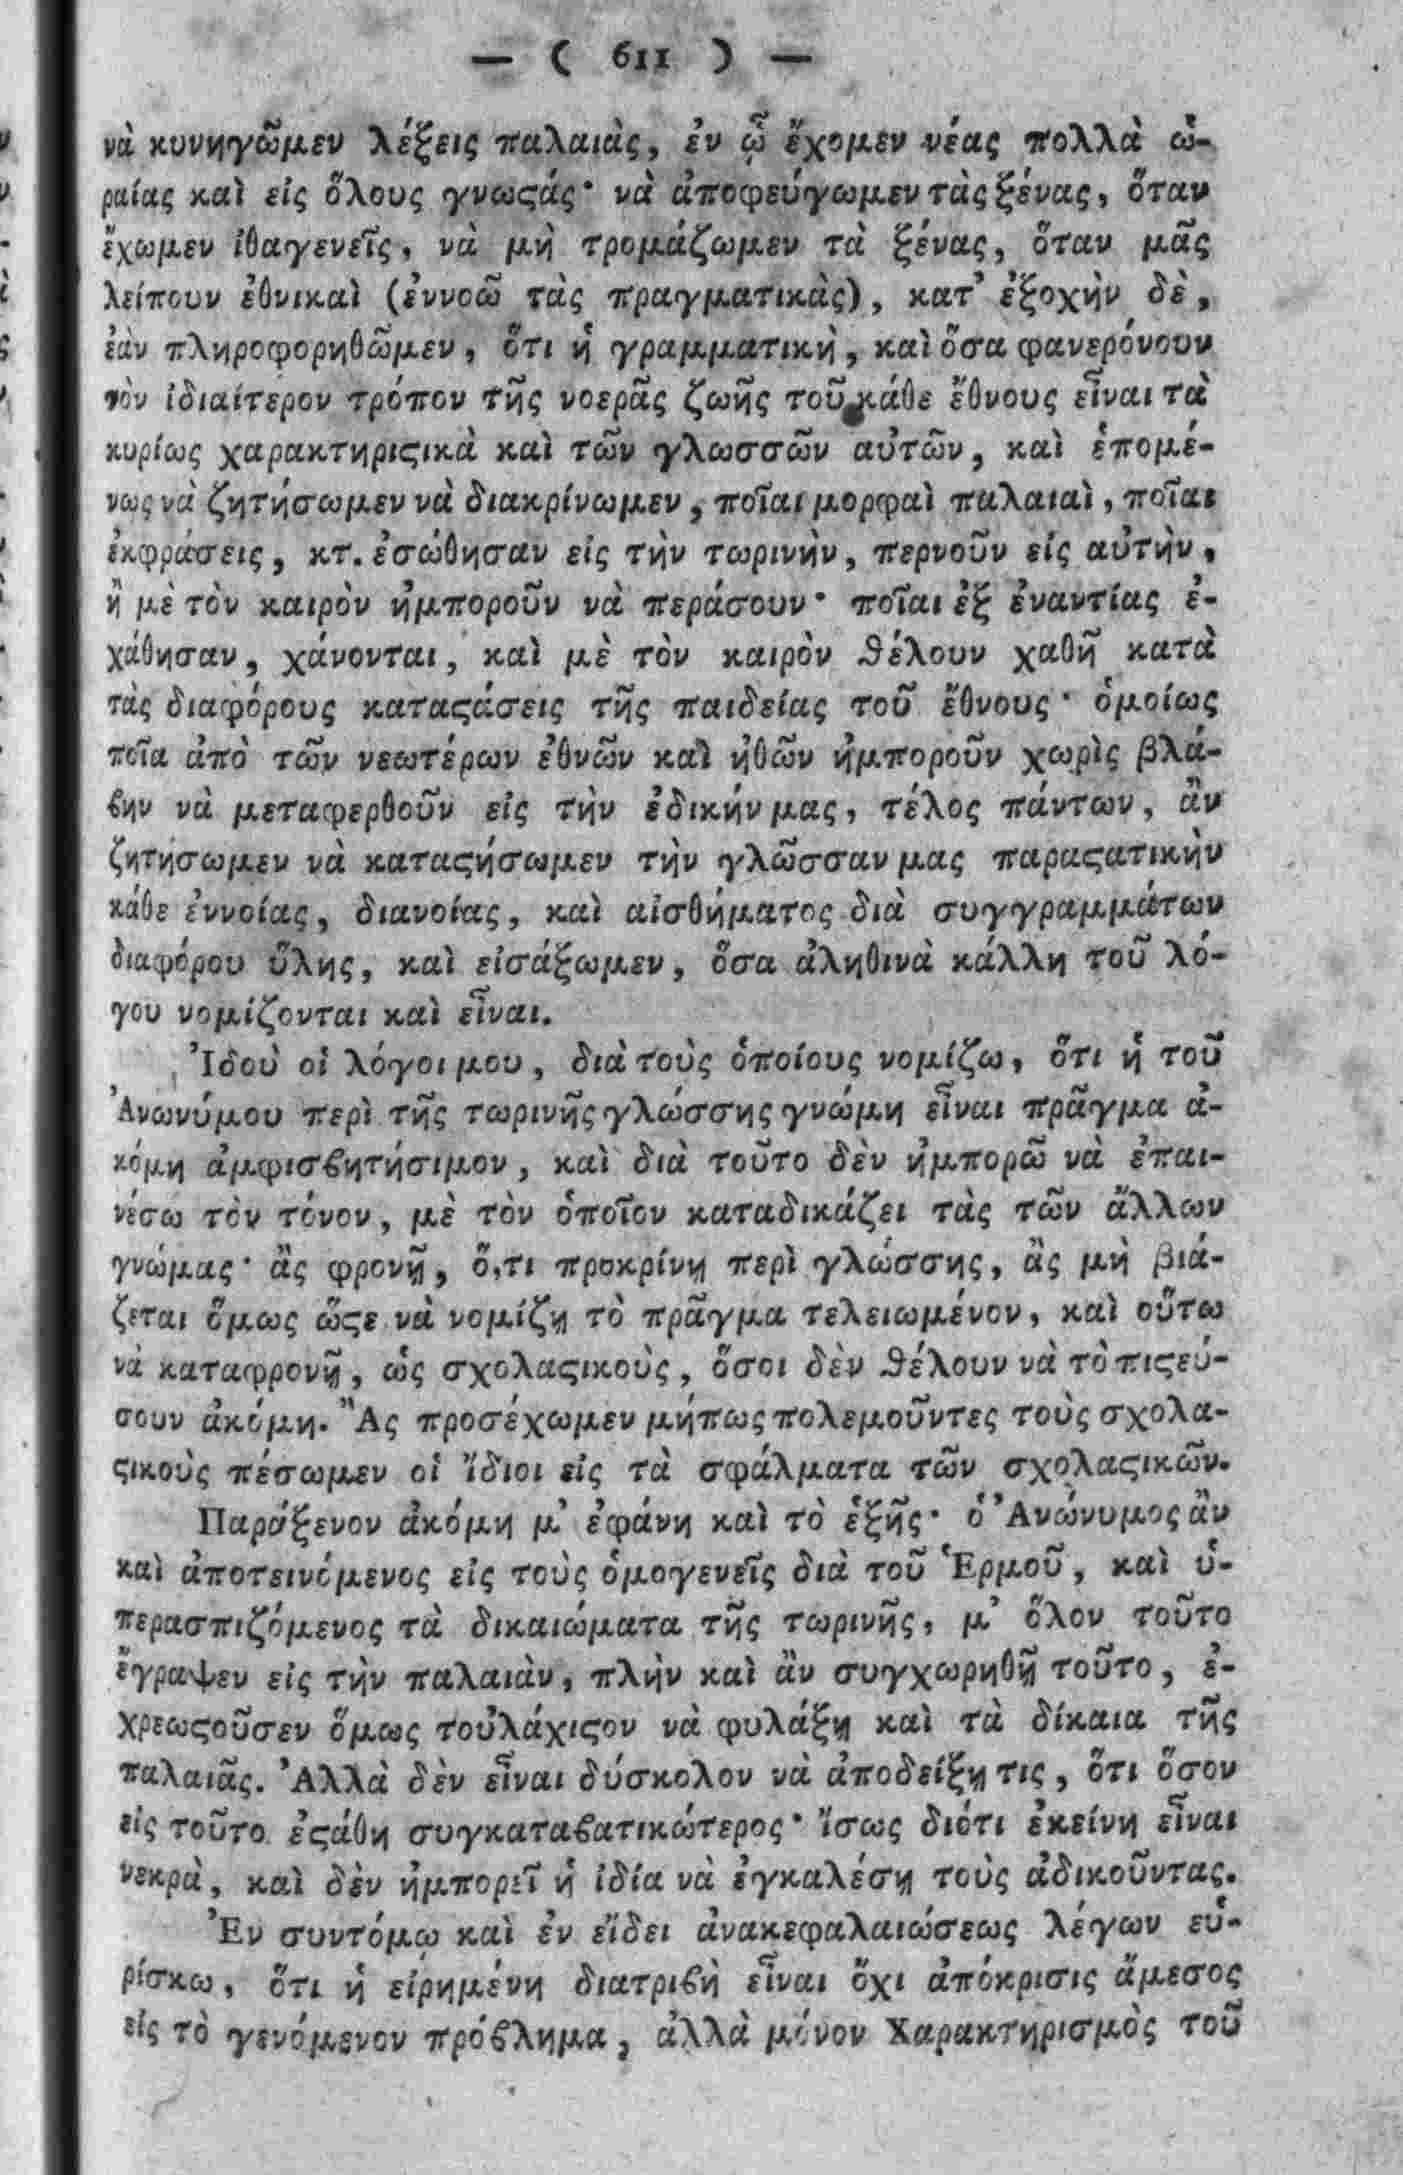 — ( 611 ) —
νὰ κυνηγῶμεν λέξεις παλαιὰς, ἐν ᾧ ἔχομεν νέας πολλὰ ὡ-
ραίας καὶ εἰς ὅλους γνωϛάς· νὰ ἀποφεύγωμεν τὰς ξένας, ὅταν
ἔχωμεν ἰθαγενεῖς, νὰ μὴ τρομάζωμεν τὰ ξένας, ὅταν μᾶς
λείπουν ἐθνικαὶ (ἐννοῶ τὰς πραγματικὰς), κατ' ἐξοχὴν δὲ,
ἐὰν πληροφορηθῶμεν, ὅτι ἡ γραμματικὴ, καὶ ὅσα φανερόνουν
τὸν ἰδιαίτερον τρόπον τῆς νοερᾶς ζωῆς τοῦ κάθε ἔθνους εἶναι τὰ
κυρίως χαρακτηριϛικὰ καὶ τῶν γλωσσῶν αὐτῶν, καὶ ἑπομέ-
νως νὰ ζητήσωμεν νὰ διακρίνωμεν, ποῖαι μορφαὶ παλαιαὶ, ποῖαι
ἐκφράσεις, κτ. ἐσώθησαν εἰς τὴν τωρινὴν, περνοῦν εἰς αὐτὴν,
ἢ μὲ τὸν καιρὸν ἠμποροῦν νὰ περάσουν· ποῖαι ἐξ ἐναντίας ἐ-
χάθησαν, χάνονται, καὶ μὲ τὸν καιρὸν ϑέλουν χαθῇ κατὰ
τὰς διαφόρους καταϛάσεις τῆς παιδείας τοῦ ἔθνους· ὁμοίως
ποῖα ἀπὸ τῶν νεωτέρων ἐθνῶν καὶ ἠθῶν ἠμποροῦν χωρὶς βλά-
ϐην νὰ μεταφερθοῦν εἰς τὴν ἐδικήν μας, τέλος πάντων, ἂν
ζητήσωμεν νὰ καταϛήσωμεν τὴν γλῶσσαν μας παραϛατικὴν
κάθε ἐννοίας, διανοίας, καὶ αἰσθήματος διὰ συγγραμμάτων
διαφόρου ὕλης, καὶ εἰσάξωμεν, ὅσα ἀληθινὰ κάλλη τοῦ λό-
γου νομίζονται καὶ εἶναι.
Ἰδοὺ οἱ λόγοι μου, διὰ τοὺς ὁποίους νομίζω, ὅτι ἡ τοῦ
Ἀνωνύμου περὶ τῆς τωρινῆς γλώσσης γνώμη εἶναι πρᾶγμα ἀ-
κόμη ἀμφισϐητήσιμον, καὶ διὰ τοῦτο δὲν ἠμπορῶ νὰ ἐπαι-
νέσω τὸν τόνον, μὲ τὸν ὁποῖον καταδικάζει τὰς τῶν ἄλλων
γνώμας· ἂς φρονῇ, ὅ,τι προκρίνῃ περὶ γλώσσης, ἂς μὴ βιά-
ζεται ὅμως ὥϛε νὰ νομίζῃ τὸ πρᾶγμα τελειωμένον, καὶ οὕτω
νὰ καταφρονῇ, ὡς σχολαϛικοὺς, ὅσοι δὲν ϑέλουν νὰ τὸ πιϛεύ-
σουν ἀκόμη. Ἂς προσέχωμεν μήπως πολεμοῦντες τοὺς σχολα-
ϛικοὺς πέσωμεν οἱ ἴδιοι εἰς τὰ σφάλματα τῶν σχολαϛικῶν.
Παράξενον ἀκόμη μ' ἐφάνη καὶ τὸ ἑξῆς· ὁ Ἀνώνυμος ἂν
καὶ ἀποτεινόμενος εἰς τοὺς ὁμογενεῖς διὰ τοῦ Ἑρμοῦ, καὶ ὑ-
περασπιζόμενος τὰ δικαιώματα τῆς τωρινῆς, μ' ὅλον τοῦτο
ἔγραψεν εἰς τὴν παλαιὰν, πλὴν καὶ ἂν συγχωρηθῇ τοῦτο, ἐ-
χρεωϛοῦσεν ὅμως τοὐλάχιϛον νὰ φυλάξῃ καὶ τὰ δίκαια τῆς
παλαιᾶς. Ἀλλὰ δὲν εἶναι δύσκολον νὰ ἀποδείξῃ τις, ὅτι ὅσον
εἰς τοῦτο ἐϛάθη συγκαταϐατικώτερος· ἴσως διότι ἐκείνη εἶναι
νεκρὰ, καὶ δὲν ἠμπορεῖ ἡ ἰδία νὰ ἐγκαλέσῃ τοὺς ἀδικοῦντας.
Ἐν συντόμῳ καὶ ἐν εἴδει ἀνακεφαλαιώσεως λέγων εὑ-
ρίσκω, ὅτι ἡ εἰρημένη διατριϐὴ εἶναι ὄχι ἀπόκρισις ἄμεσος
εἰς τὸ γενόμενον πρόϐλημα, ἀλλὰ μόνον Χαρακτηρισμὸς τοῦ